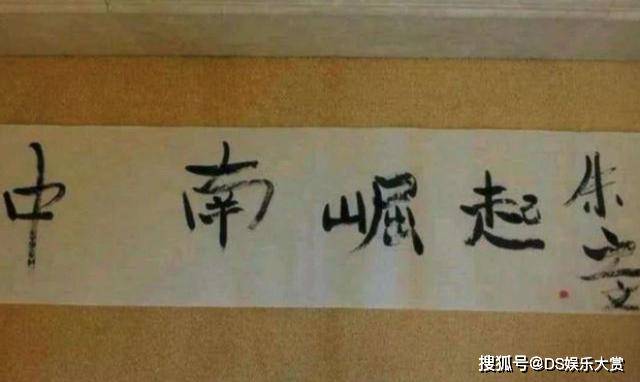 中南崛起
朱之文
搜狐号@DS娱乐大赏